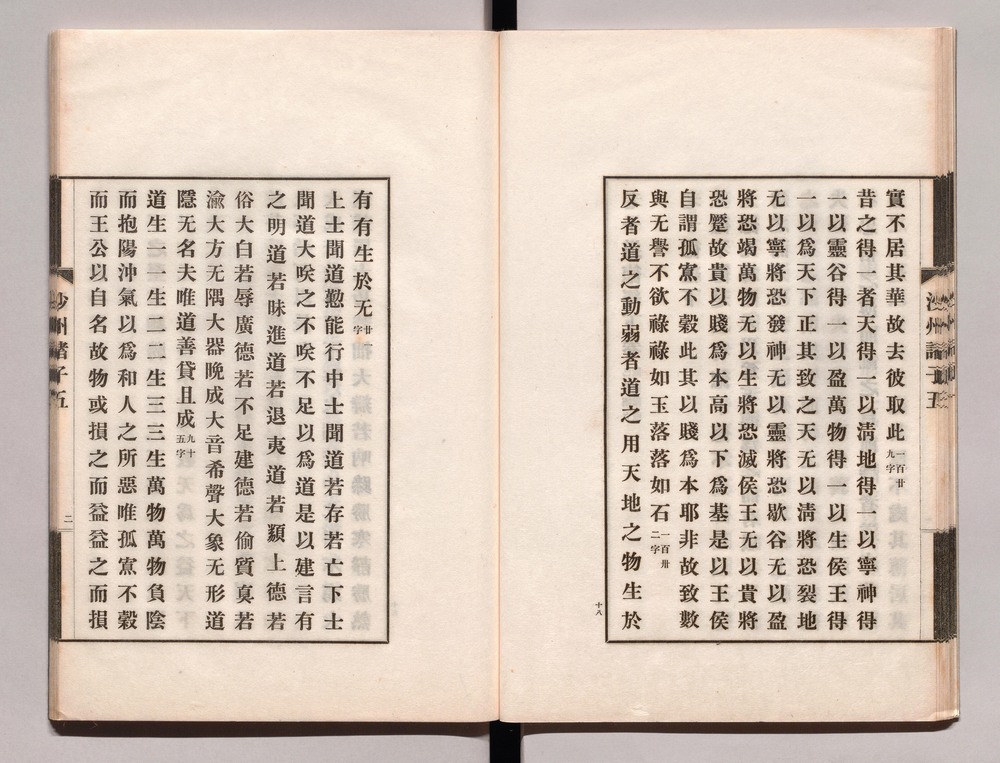 實不居其華故去彼取此一百廿九字
昔之得一者天得一以清地得一以寧神得
一以靈谷得一以盈萬物得一以生侯王得
一以爲天下正其致之天无以清將恐裂地
无以寧將恐發神无以靈將恐歇谷无以盈
將恐竭萬物无以生將恐滅侯王无以貴將
恐蹷故貴以賤爲本高以下爲基是以王侯
自謂孤寡不穀此其以賤爲本耶非故致數
與无譽不欲祿祿如玉落落如石一百卅二字
反者道之動弱者道之用天地之物生於
十八
有有生於无廿字
上士聞道懃能行中士聞道若存若亡下士
聞道大唉之不唉不足以爲道是以建言有
之明道若昧進道若退夷道若纇上德若
俗大白若辱廣德若不足建德若偷質真若
渝大方无隅大器晚成大音希聲大象无形道
隱无名夫唯道善貸且成九十五字
道生一一生二二生三三生萬物萬物負陰
而抱陽沖氣以爲和人之所惡唯孤寡不穀
而王公以自名故物或損之而益益之而損
沙州諸子五
二